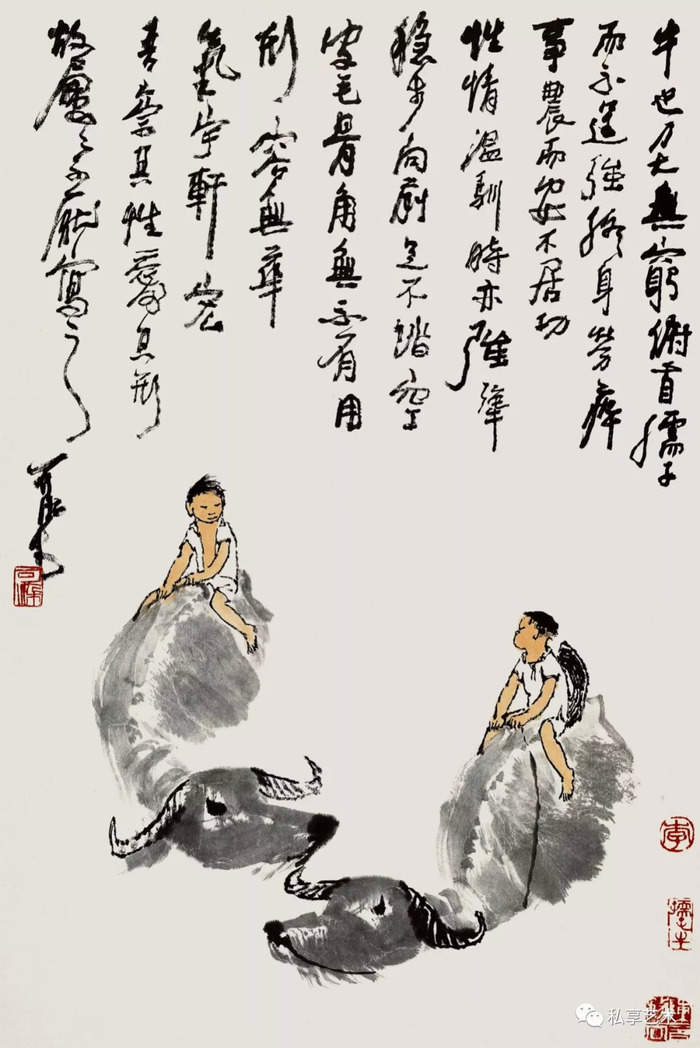 牛也力大無窮俯首孺子
而不逞強終身勞瘁
事農而安不居功
性情温馴時亦強犟
穩步向前足不踏空
皮毛骨角無不有用
形容無華
氣宇軒宏
吾崇其性愛其形
故屢屢不厭寫之
可染
可染
李
私享艺术